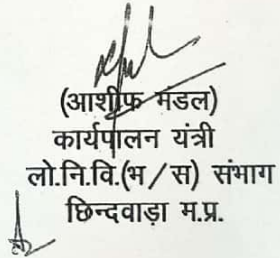 (आशीफ मंडल)
कार्यपालन यंत्री
लो.नि.वि.(भ/स) संभाग
छिन्दवाड़ा म.प्र.